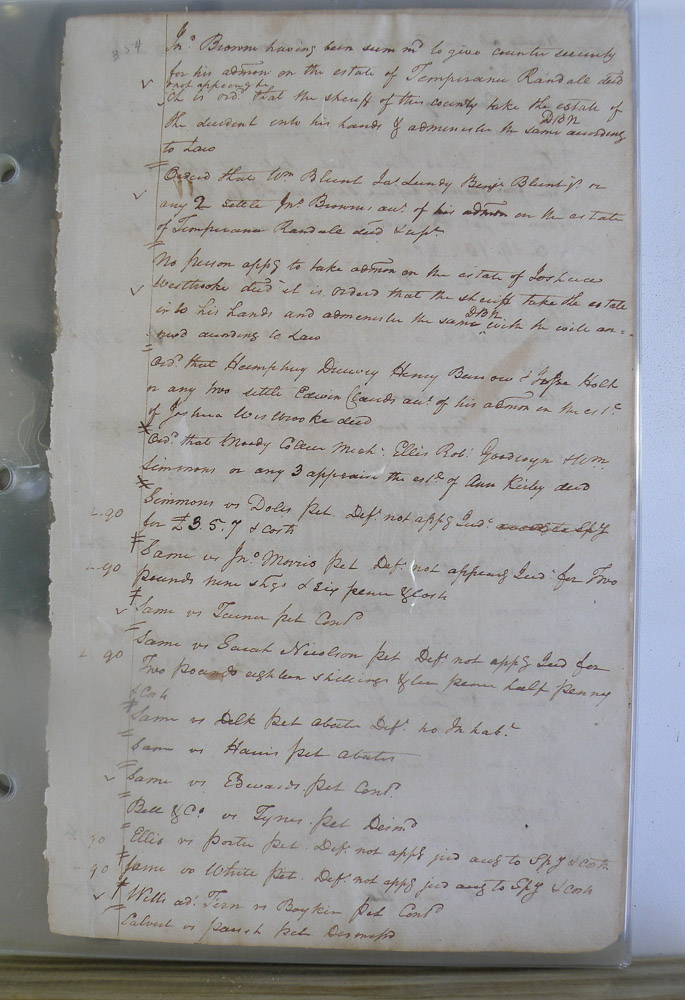 354
Jno. Browne having been summd to give counter security
for his admon on the estate of Temperance Randale decd
& not appearing he
it is ord. that the sheriff of this county take the estate of
the decedent into his hands & administer the same DBN according
to Law
Orderd that Wm Blunt Jas Lundy Benjn Blunt jr or
any 2 settle Jno. Browns acct. of his admon on the estate
of Temperance Randale decd & rept
No person appg to take admon on the estate of Joshua
Westbrooke decd it is orderd that the sheriff take the estate
into his hands and administer the same DBN with the will an=
nexd according to Law
Ord. that Humphrey Henry Barrow & Jesse Holt
or any two settle Edwin acct. of his admon on the estt.
of Joshua Westbrooke decd
Ord. that Moody Michl. Ellis Robt. Goodwyn & Wm
Simmons or any 3 appraise the estt. of Ann Kirby decd
-.90 Simmons vs Doles pet Deft. not appg Judt.
for £3.5.7 & costs
-.90 Same vs Jno. Morris pet Deft. not appearg Jud. for Two
pounds nine shgs & six pence & Costs
Same vs Turner pet Contd
-. 90 Same vs Sarah Nicolson pet Deft not appg Jud for
Two pounds eighteen shillings & pence half penny
& Costs
Same vs Delk pet abates Deft. no Inhabt.
Same vs Harris pet abates
Same vs Edwards pet Contd
Bell & Co. vs Tynes pet Dismd
90 Ellis vs Porter pet. Deft. not appg jud accg to Spy & Costs
-90 Same vs White pet. Deft. not appg jud accg to Spy & Costs
Wills ad. vs Boykin pet Contd
Calvert vs Parish pet Dismissd